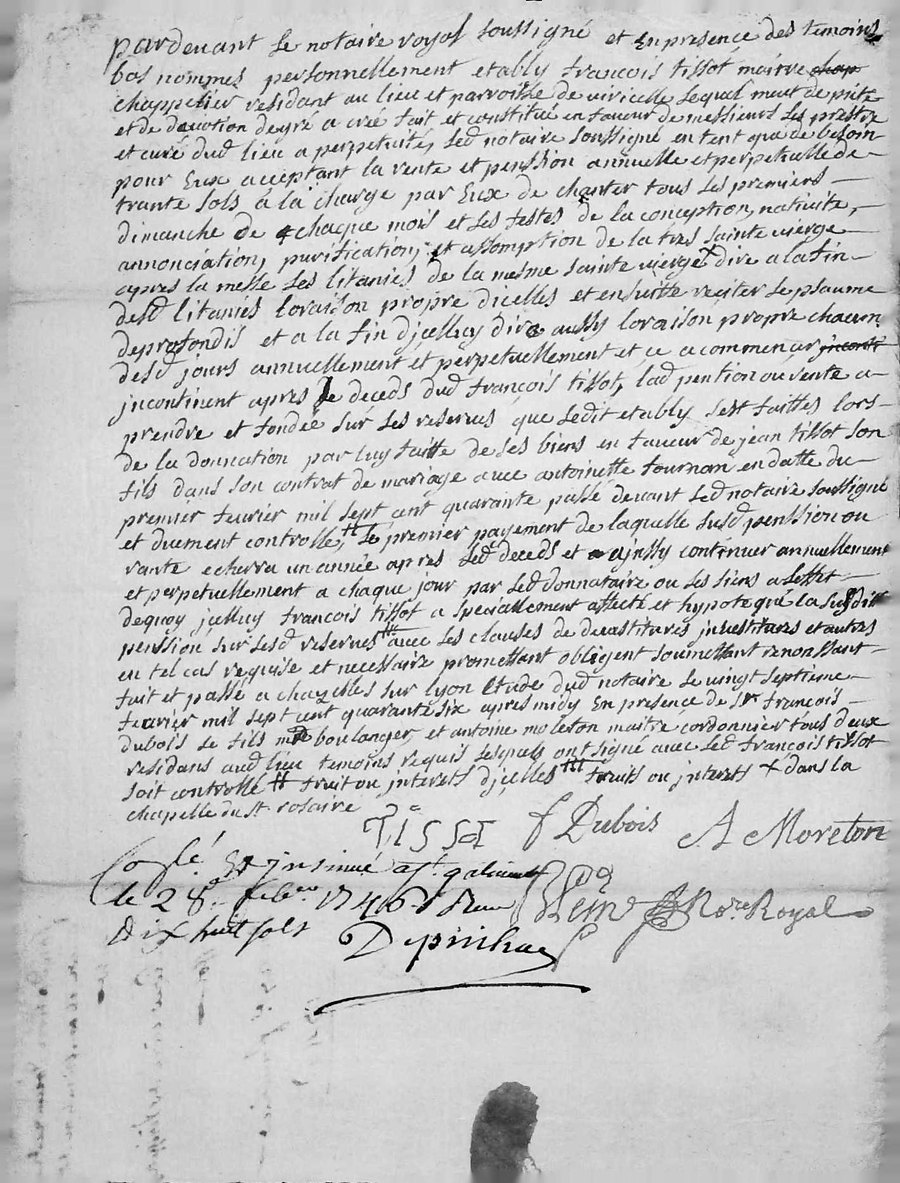 pardevant le notaire royal soussigné et en presence des temoins
bas nommes personnellement etably francois tissot maitre chap
chappelier residant au lieu et parroisse de viricelle lequel meut de piété
et de devotion degré a créé fait et constitué en faveur de messieurs les prestre
et curé dud lieu a perpetuité, led notaire soussigné en tent que de besoin
pour Eux acceptant la rente et pension annuelle et perpetuelle de
trante sols à la charge par Eux de chanter tous les premiers
dimanche de chaque mois et les festes de la conception, nativité,
annonciation, purification, et assomption de la tres sainte vierge
apres la messe les litanies de la mesme sainte vierge + dire a la fin
desd litanies loraison propre dicelles et ensuitte reciter le psaume
deprofondis et a la fin djcelluy dire aussy loraison propre chacun
desd jours annuellement et perpetuellement et ce a commencer jncont
jncontinent apres le deceds dud francois tissot, lad pention ou rente a
prendre et fondée sur les reserves que ledit etably sest faittes lors
de la donnation par luy faitte de ses biens en faveur de jean tissot son
fils dans son contrat de mariage avec antoinette fournan en datte du
premier fevrier mil sept cent quarante passé devant led notaire soussigné
et duement controllé, tt le premier payement de laquelle susd penssion ou
rante echerra un année apres led deceds et ajnssy continuer annuellement
et perpetuellement a chaque jour par led donnataire ou les siens a leffet
dequoy jcelluy francois tissot a speciallement affecté et hypotequé la susditte
penssion sur lesd reserves ttt avec les clauses de devestitures jnvestitures et autres
en tel cas requise et necessaire promettant obligent soumettant renonssant
fait et passé a chazelles sur lyon Etude dud notaire le vingt septieme
fevrier mil sept cent quarante six apres midy En presence de sr francois
dubois le fils me boulanger et antoine moreton maitre cordonnier tous deux
residans aud lieu temoins requis lesquels ont signé avec led francois tissot
soit controllé tt fruit ou interets djcelles ttt fruits ou jnterets + dans la
chapelle du st rosaire
TissoT f Dubois A Moreton
Conlé Et jnsinué a
le 28e febvr 1746 Reçu
Dix huit sols Nore Royal